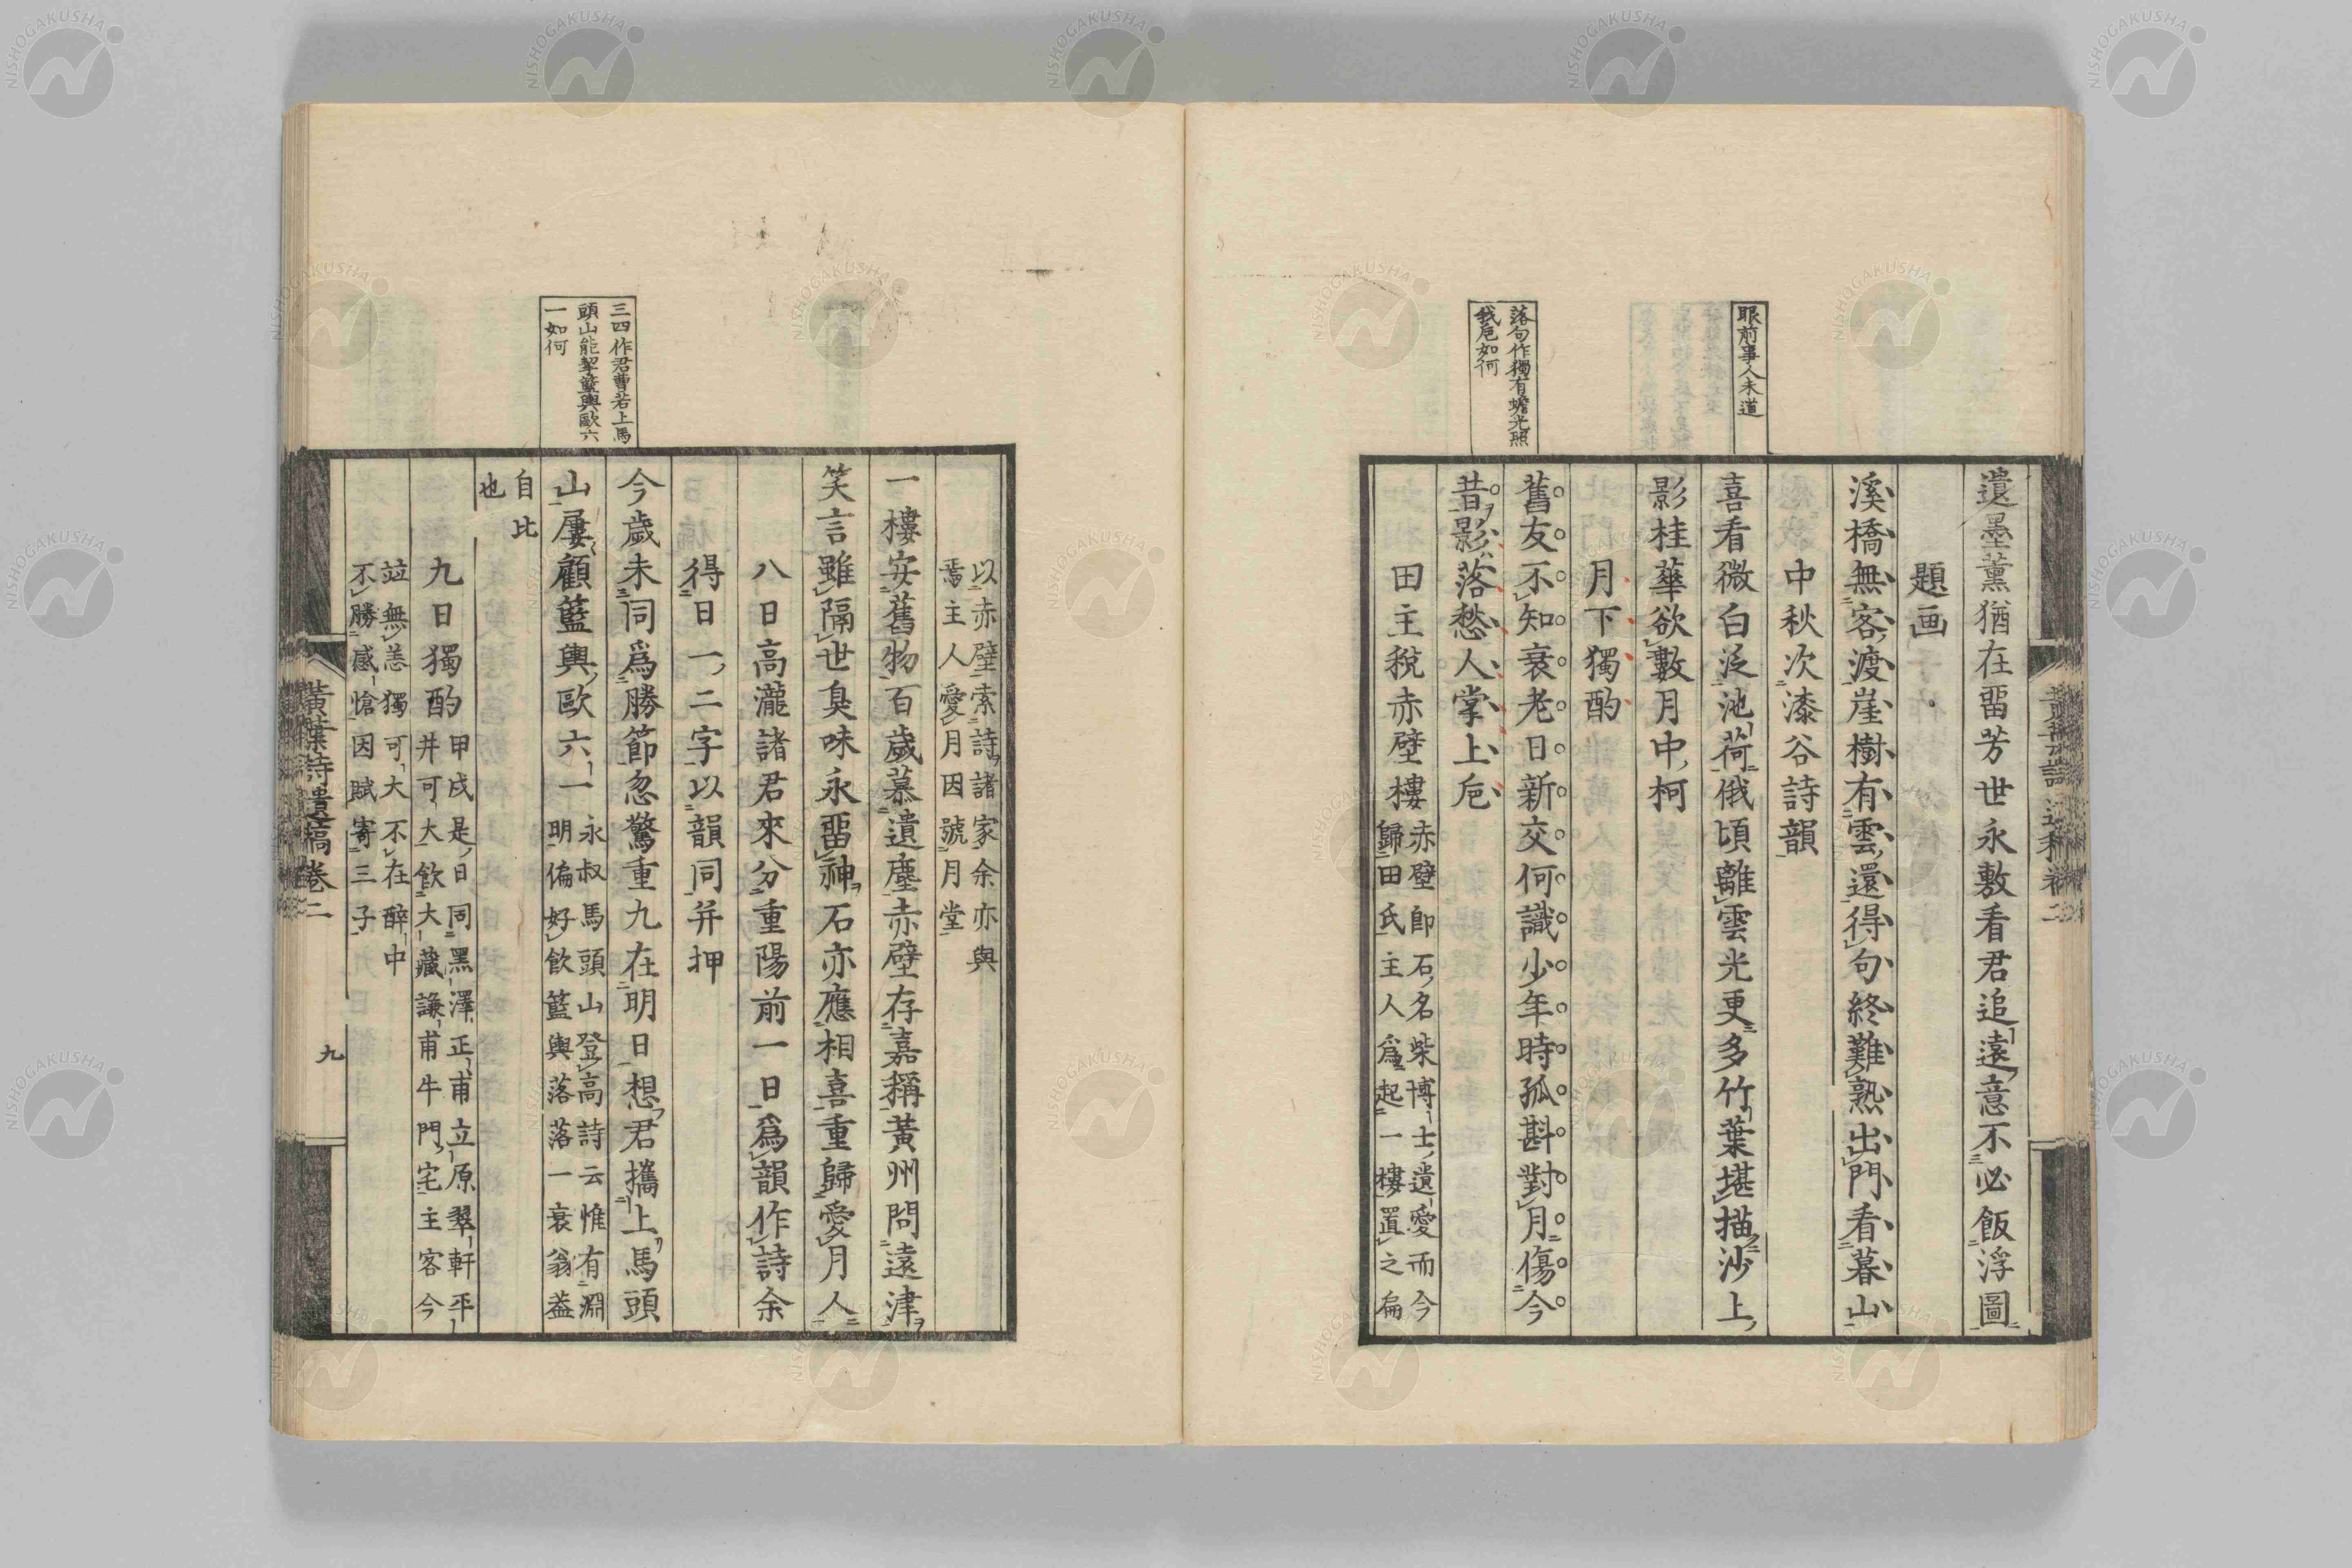 遺墨薰猶在畱芳世永敷看君追遠意不必飯浮圖
題画
溪橋無客渡崖樹有雲還得句終難熟出門看暮山
中秋次漆谷詩韻
喜看微白泛池荷俄頃離雲光更多竹葉堪描沙上
影桂華欲數月中柯
月下獨酌
舊友不知衰老日新交何識少年時孤斟對月傷今
昔影落愁人掌上巵
田主稅赤壁樓
赤壁卽石名柴博士遺愛而今
歸田氏主人爲起一樓置之扁
眼前事人未道
落句作獨有蟾光照
我巵如何
以赤壁索詩諸家余亦與
焉主人愛月因號月堂
一樓安舊物百歲慕遺塵赤壁存嘉稱黃州問遠津
笑言雖隔世臭味永畱神石亦應相喜重歸愛月人
八日高瀧諸君來分重陽前一日爲韻作詩余
得日一二字以韻同并押
今歲未同爲勝節忽驚重九在明日想君攜上馬頭
山屢顧籃輿歐六一
永叔馬頭山登高詩云惟有淵
明偏好飲籃輿落落一衰翁蓋
自比
也
九日獨酌
甲戌是日同黑澤正甫立原翠軒平
井可大飲大藏謙甫牛門宅主客今
竝無恙獨可大不在醉中
不勝感愴因賦寄三子
三四作君曹若上馬
頭山能挈籃輿歐六
一如何
黃葉詩遺稿卷二
九
NISHOGAKUSHA